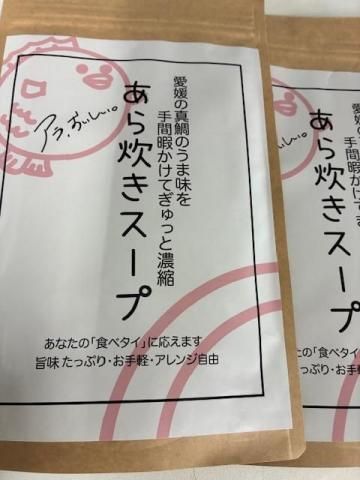 愛媛の真鯛のうま味を
手間暇かけてぎゅっと濃縮
あら炊きスープ
アラ、おいしい。
あなたの「食べタイ」に応えます
旨味たっぷり・お手軽・アレンジ自由
愛媛の真鯛のうま
手間暇かけてぎ
あら炊きスープ
アラ、おいしい
たの「食べタイ」に
っぷり・お手軽・ア